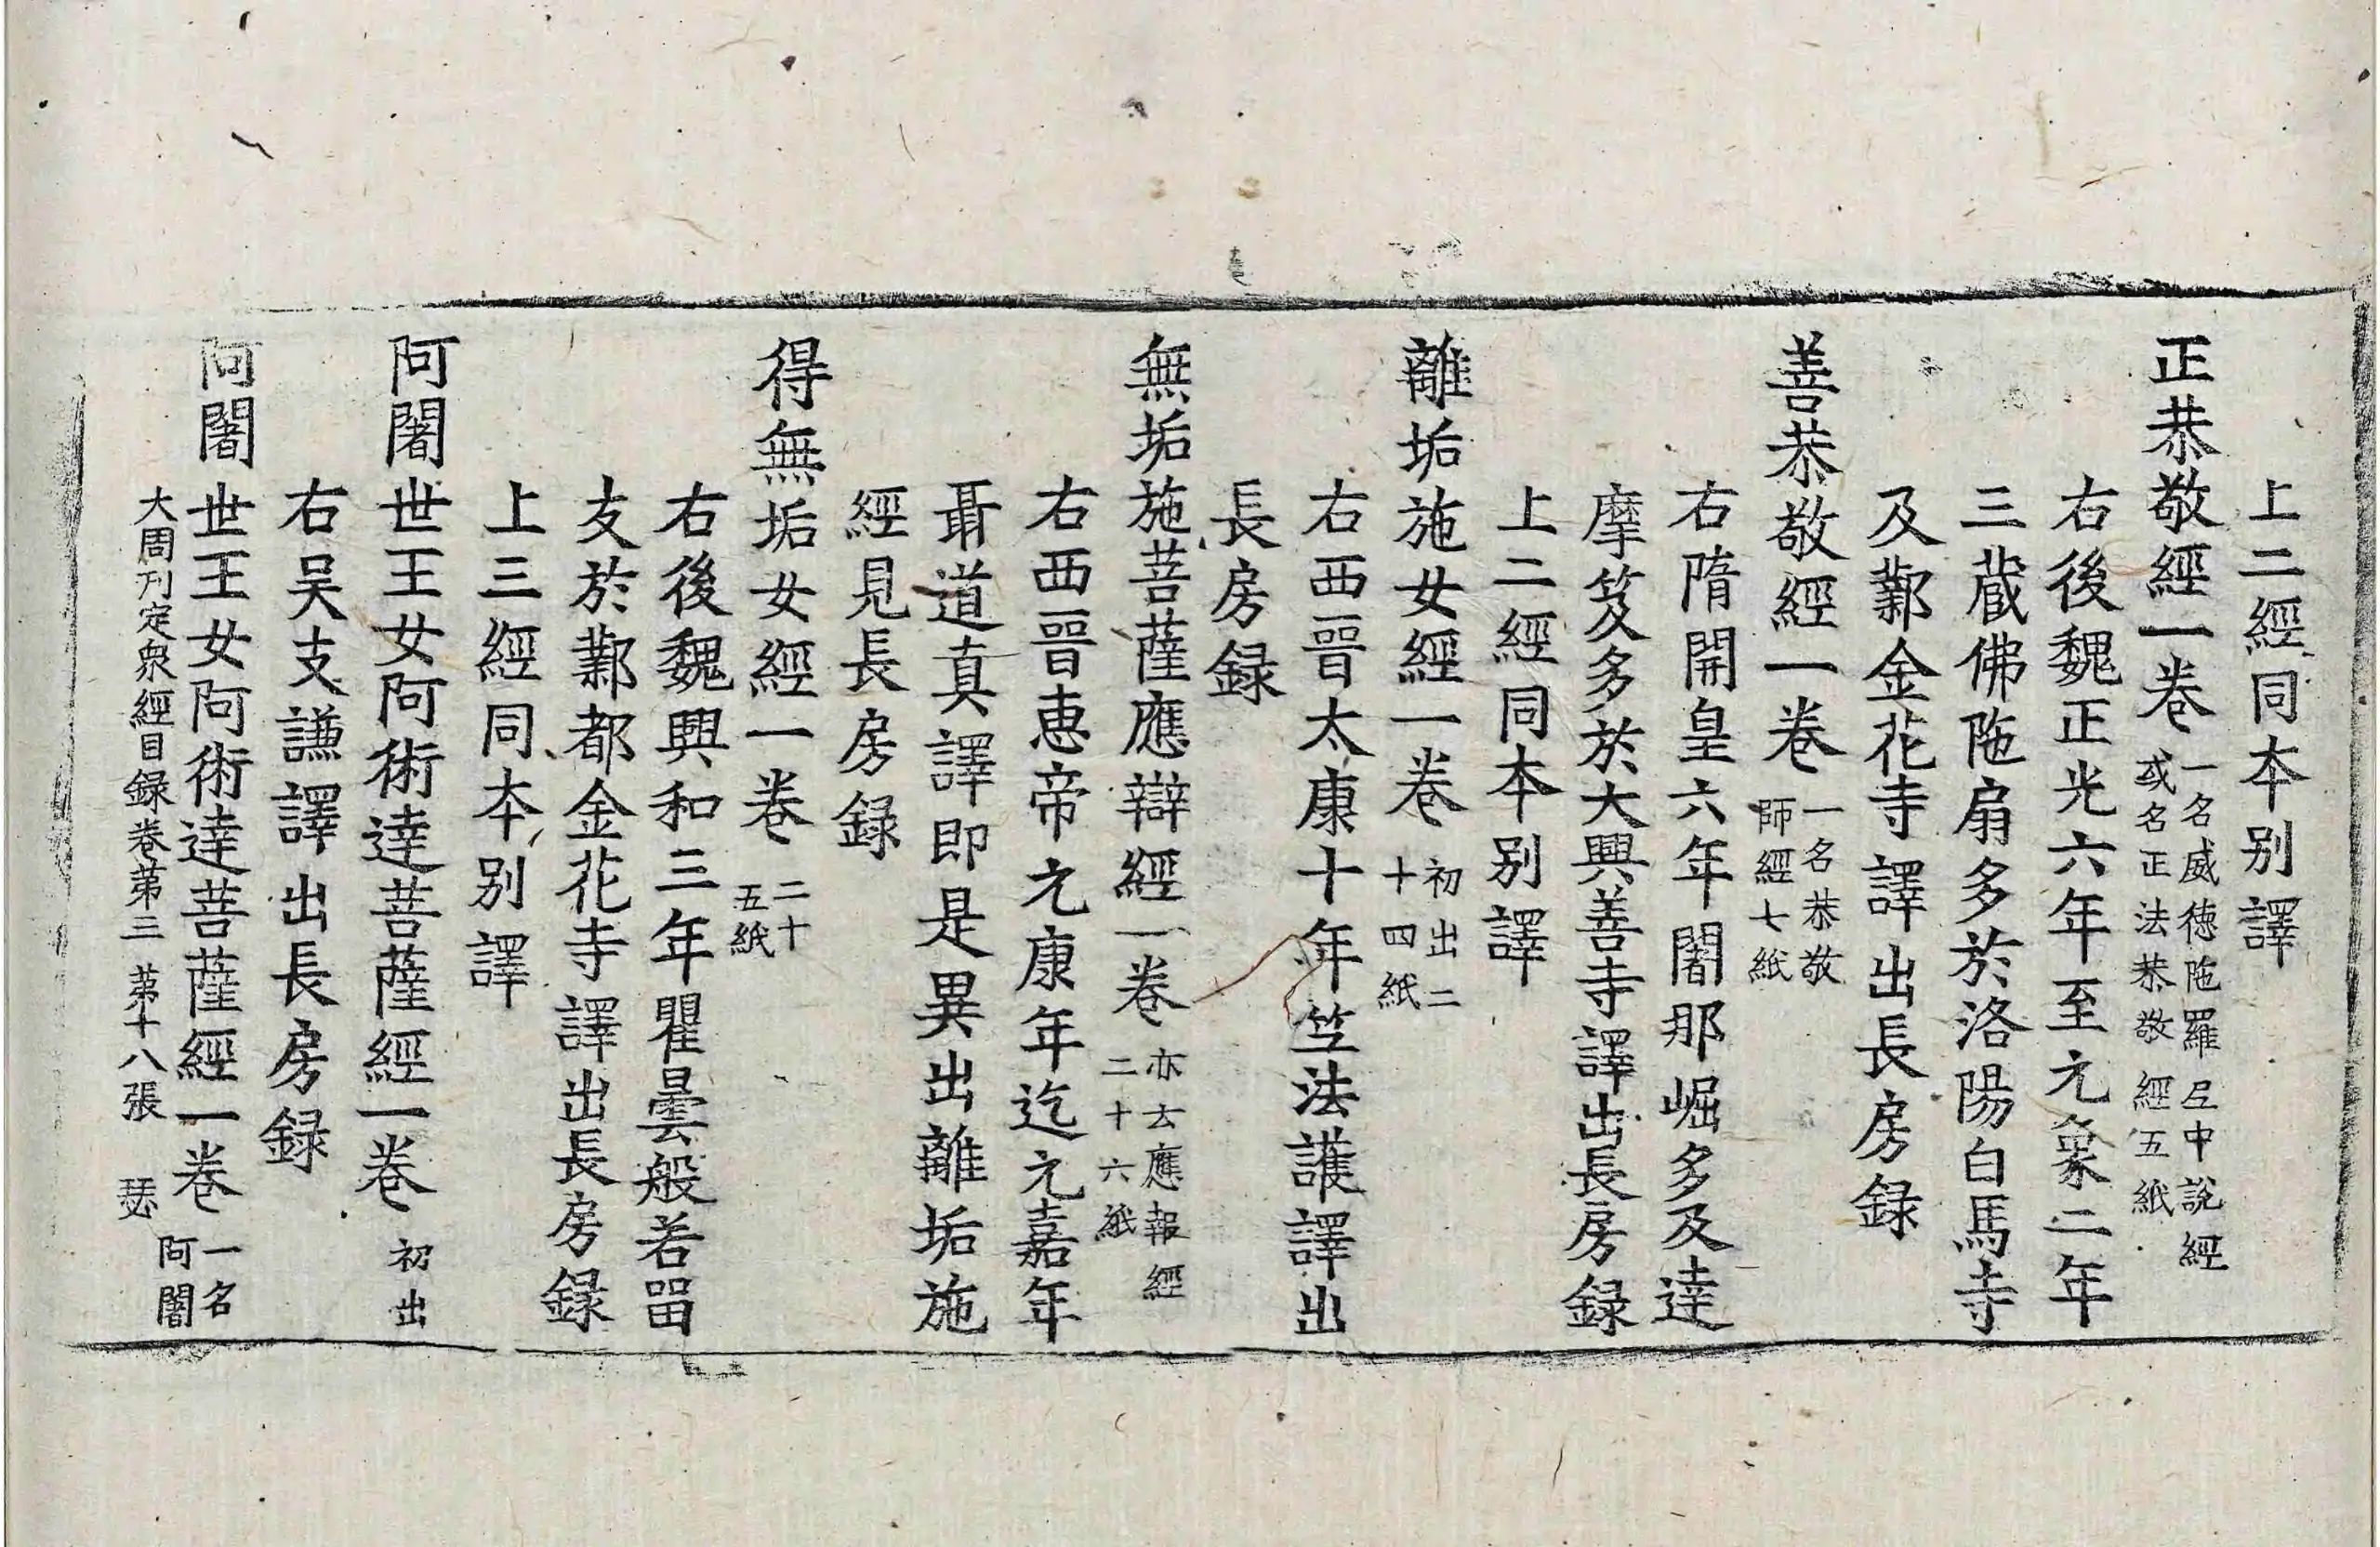 上二經同本別譯
正恭敬經一卷 一名威德陁羅尼中說經 或名正法恭敬經五紙
右後魏正光六年至元象二年
三藏佛陁扇多於洛陽白馬寺
及鄴金花寺譯出長房録
善恭敬經一卷 一名恭敬 師經七紙
右隋開皇六年闍那崛多及達
摩笈多於大興善寺譯出長房録
上二經同本別譯
離垢施女經一卷 初出二 十四紙
右西晉太康十年竺法護譯出
長房録
無垢施菩薩應辯經一卷 亦云應報經 二十六紙
右西晉惠帝元康年迄元嘉年
聶道真譯即是異出離垢施
經見長房録
得無垢女經一卷 二十 五紙
右後魏興和三年瞿曇般若畱
支於鄴都金花寺譯出長房録
上三經同本別譯
阿闍世王女阿術達菩薩經一卷 初出
右吴支謙譯出長房録
阿闍世王女阿術達菩薩經一卷 一名 阿闍
大周刊定衆經目録卷苐三 苐十八張 瑟